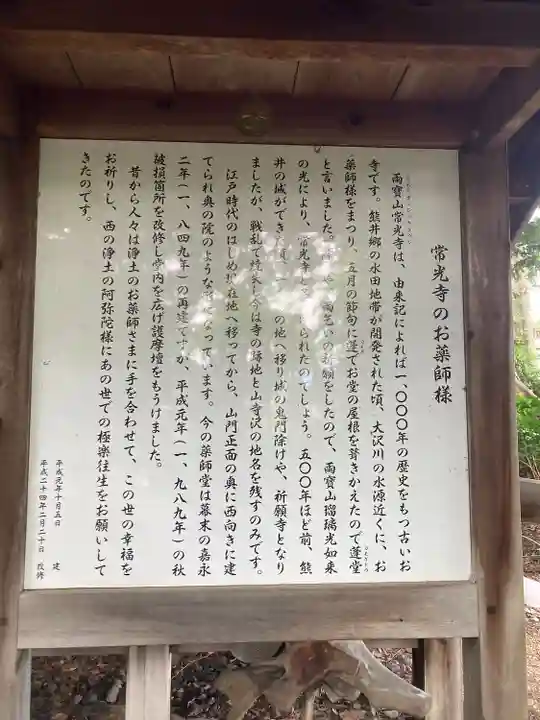 常光寺のお薬師様
雨寶山常光寺は、由来記によれば一〇〇〇年の歴史をもつ古いお
寺です。熊井郷の水田地帯が開発された頃、大沢川の水源近くに、お
薬師様をまつり、五月の節句に蓬でお堂の屋根を葺きかえたので蓬堂
と言いました。雨乞いの祈願をしたので、雨寶山瑠璃光如来
の光により、常光寺と られたのでしょう。五〇〇年ほど前、熊
井の城ができた頃 の地へ移り城の鬼門除けや、祈願寺となり
ましたが、戦乱で焼失し今は寺の跡地と山寺沢の地名を残すのみです。
江戸時代のはじめ現在地へ移ってから、山門正面の奥に西向きに建
てられ奥の院のような形になっています。今の薬師堂は幕末の嘉永
二年(一、八四九年)の再建ですが、平成元年(一、九八九年)の秋
破損箇所を改修し堂内を広げ護摩壇をもうけました。
昔から人々は浄土のお薬師さまに手を合わせて、この世の幸福を
お祈りし、西の浄土の阿弥陀様にあの世での極楽往生をお願いして
きたのです。
平成元年十月五日 建
平成二十四年二月二十日 改修